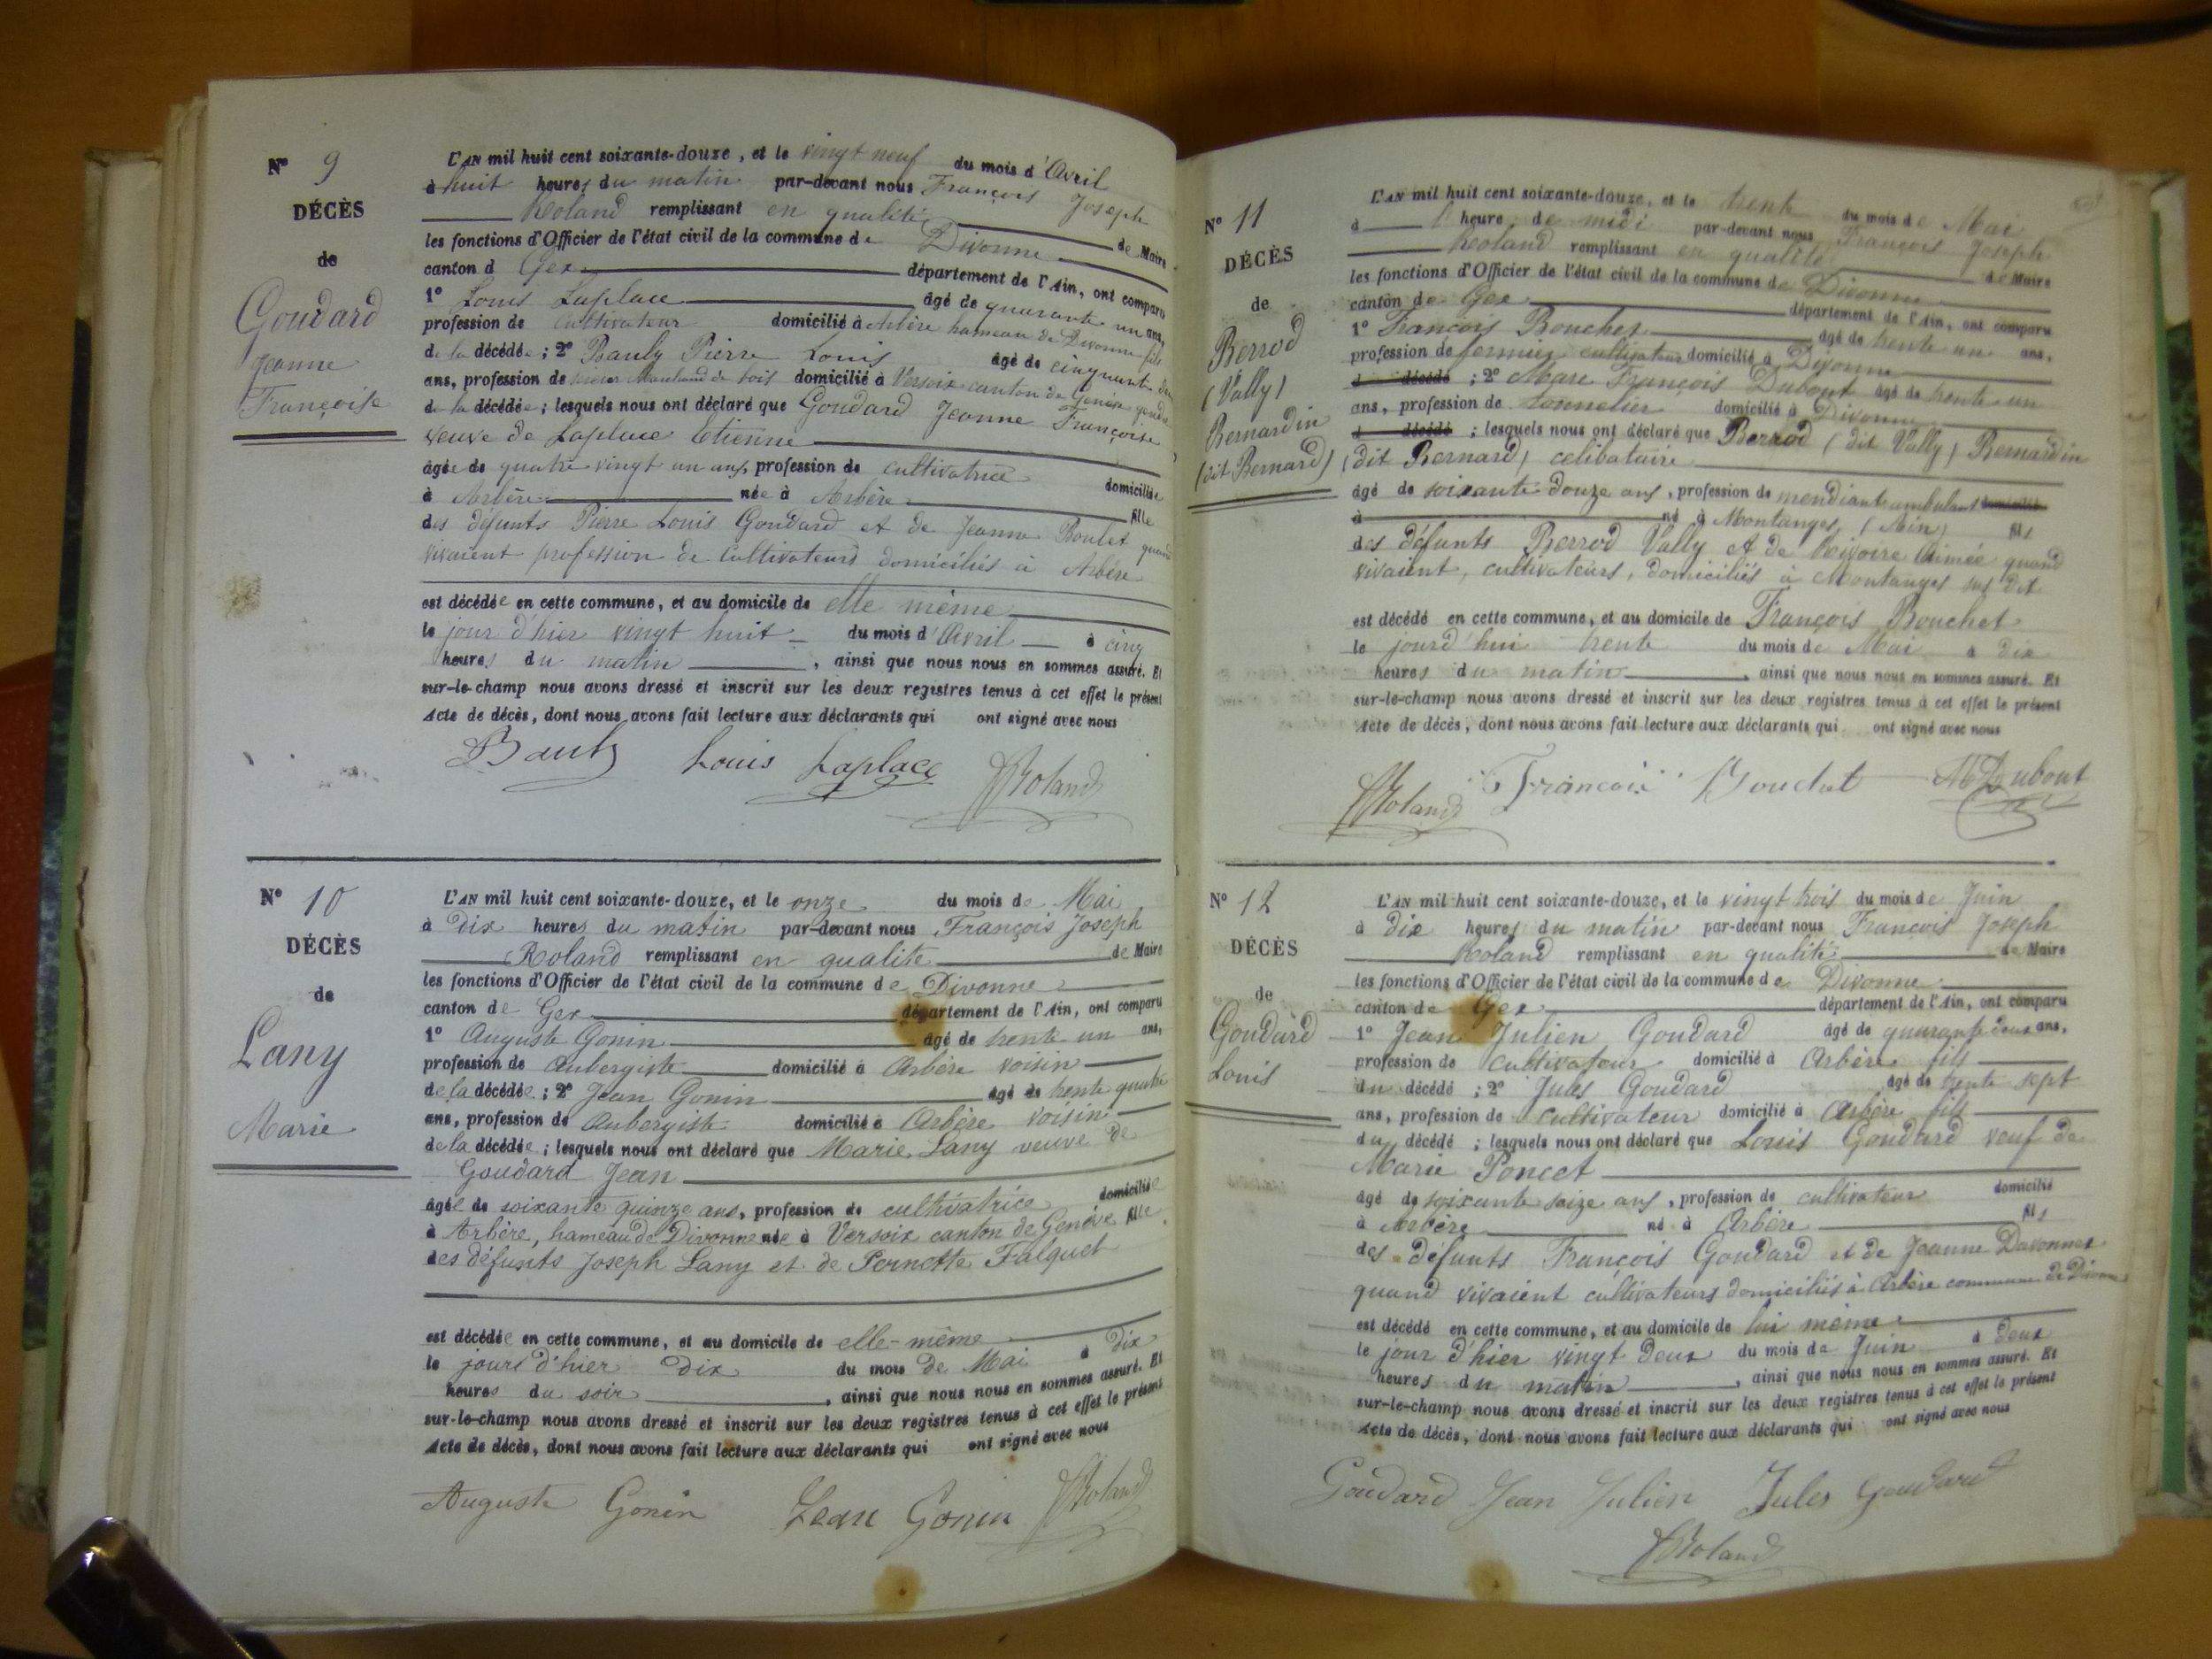 N° 9
DÉCÈS
de
Goudard
Jeanne
Françoise
L'AN mil huit cent soixante-douze, et le vingt neuf du mois d'Avril
à huit heures du matin par-devant nous François Joseph
Roland remplissant en qualité de Maire
les fonctions d'Officier de l'état civil de la commune de Divonne
canton d Gex département de l'Ain, ont comparu
1° Louis Laplace âgé de quarante un ans,
profession de Cultivateur domicilié à Arbère hameau de Divonne fils
de la décédée ; 2° Bauly Pierre Louis âgé de cinquante
ans, profession de Marchand de bois domicilié à Versoix canton de Genève
de la décédée ; lesquels nous ont déclaré que Goudard Jeanne Françoise
veuve de Laplace Etienne
âgée de quatre vingt un ans, profession de cultivatrice domiciliée
à Arbère née à Arbère fille
des défunts Pierre Louis Goudard et de Jeanne Roulet quand
vivaient profession de Cultivateurs domiciliés à Arbère
est décédée en cette commune, et au domicile de elle même
le jour d'hier vingt huit du mois d'Avril à cinq
heures du matin , ainsi que nous nous en sommes assuré. Et
sur-le-champ nous avons dressé et inscrit sur les deux registres tenus à cet effet le présent
Acte de décès, dont nous avons fait lecture aux déclarants qui ont signé avec nous
Bauly Louis Laplace Roland
N° 10
DÉCÈS
de
Lany
Marie
L'AN mil huit cent soixante-douze, et le onze du mois de Mai
à Dix heures du matin par-devant nous François Joseph
Roland remplissant en qualité de Maire
les fonctions d'Officier de l'état civil de la commune de Divonne
canton de Gex département de l'Ain, ont comparu
1° Auguste Gonin âgé de trente un ans,
profession de Aubergiste domicilié à Arbère voisin
de la décédée ; 2° Jean Gonin âgé de trente quatre
ans, profession de Aubergiste domicilié à Arbère voisin
de la décédée ; lesquels nous ont déclaré que Marie Lany veuve de
Goudard Jean
âgée de soixante quinze ans, profession de cultivatrice domiciliée
à Arbère, hameau de Divonne née à Versoix canton de Genève fille
des défunts Joseph Lany et de Pernette Falquet
est décédée en cette commune, et au domicile de elle-même
le jours d'hier dix du mois de Mai à dix
heures du soir , ainsi que nous nous en sommes assuré. Et
sur-le-champ nous avons dressé et inscrit sur les deux registres tenus à cet effet le présent
Acte de décès, dont nous avons fait lecture aux déclarants qui ont signé avec nous
Auguste Gonin Jean Gonin Roland
N° 11
DÉCÈS
de
Berrod
(Vally)
Bernardin
(dit Bernard)
L'AN mil huit cent soixante-douze, et le trente du mois de Mai
à 1 heure de midi par-devant nous François Joseph
Roland remplissant en qualité de Maire
les fonctions d'Officier de l'état civil de la commune de Divonne
canton de Gex département de l'Ain, ont comparu
1° François Bouchet âgé de trente un ans,
profession de fermier cultivateur domicilié à Divonne
d décédé ; 2° Marc François Dubout âgé de trente un
ans, profession de tonnelier domicilié à Divonne
d décédé ; lesquels nous ont déclaré que Berrod (dit Vally) Bernardin
(dit Bernard) célibataire
âgé de soixante douze ans, profession de mendiant ambulant domicilié
à né à Montanges (Ain) fils
des défunts Berrod Vally et de Rivoire Aimée quand
vivaient, cultivateurs, domiciliés à Montanges sus dit
est décédé en cette commune, et au domicile de François Bouchet
le jourd'hui trente du mois de Mai à dix
heures du matin , ainsi que nous nous en sommes assuré. Et
sur-le-champ nous avons dressé et inscrit sur les deux registres tenus à cet effet le présent
Acte de décès, dont nous avons fait lecture aux déclarants qui ont signé avec nous
Roland François Bouchet M Dubout
N° 12
DÉCÈS
de
Goudard
Louis
L'AN mil huit cent soixante-douze, et le vingt trois du mois de Juin
à dix heures du matin par-devant nous François Joseph
Roland remplissant en qualité de Maire
les fonctions d'Officier de l'état civil de la commune de Divonne
canton de Gex département de l'Ain, ont comparu
1° Jean Julien Goudard âgé de quarante deux ans,
profession de Cultivateur domicilié à Arbère fils
du décédé ; 2° Jules Goudard âgé de trente sept
ans, profession de Cultivateur domicilié à Arbère fils
du décédé ; lesquels nous ont déclaré que Louis Goudard veuf de
Marie Poncet
âgé de soixante seize ans, profession de cultivateur domicilié
à Arbère né à Arbère fils
des défunts François Goudard et de Jeanne Davonnex
quand vivaient cultivateurs domiciliés à Arbère commune de Divonne
est décédé en cette commune, et au domicile de lui même
le jour d'hier vingt deux du mois de Juin à deux
heures du matin , ainsi que nous nous en sommes assuré. Et
sur-le-champ nous avons dressé et inscrit sur les deux registres tenus à cet effet le présent
Acte de décès, dont nous avons fait lecture aux déclarants qui ont signé avec nous
Goudard Jean Julien Jules Goudard
Roland